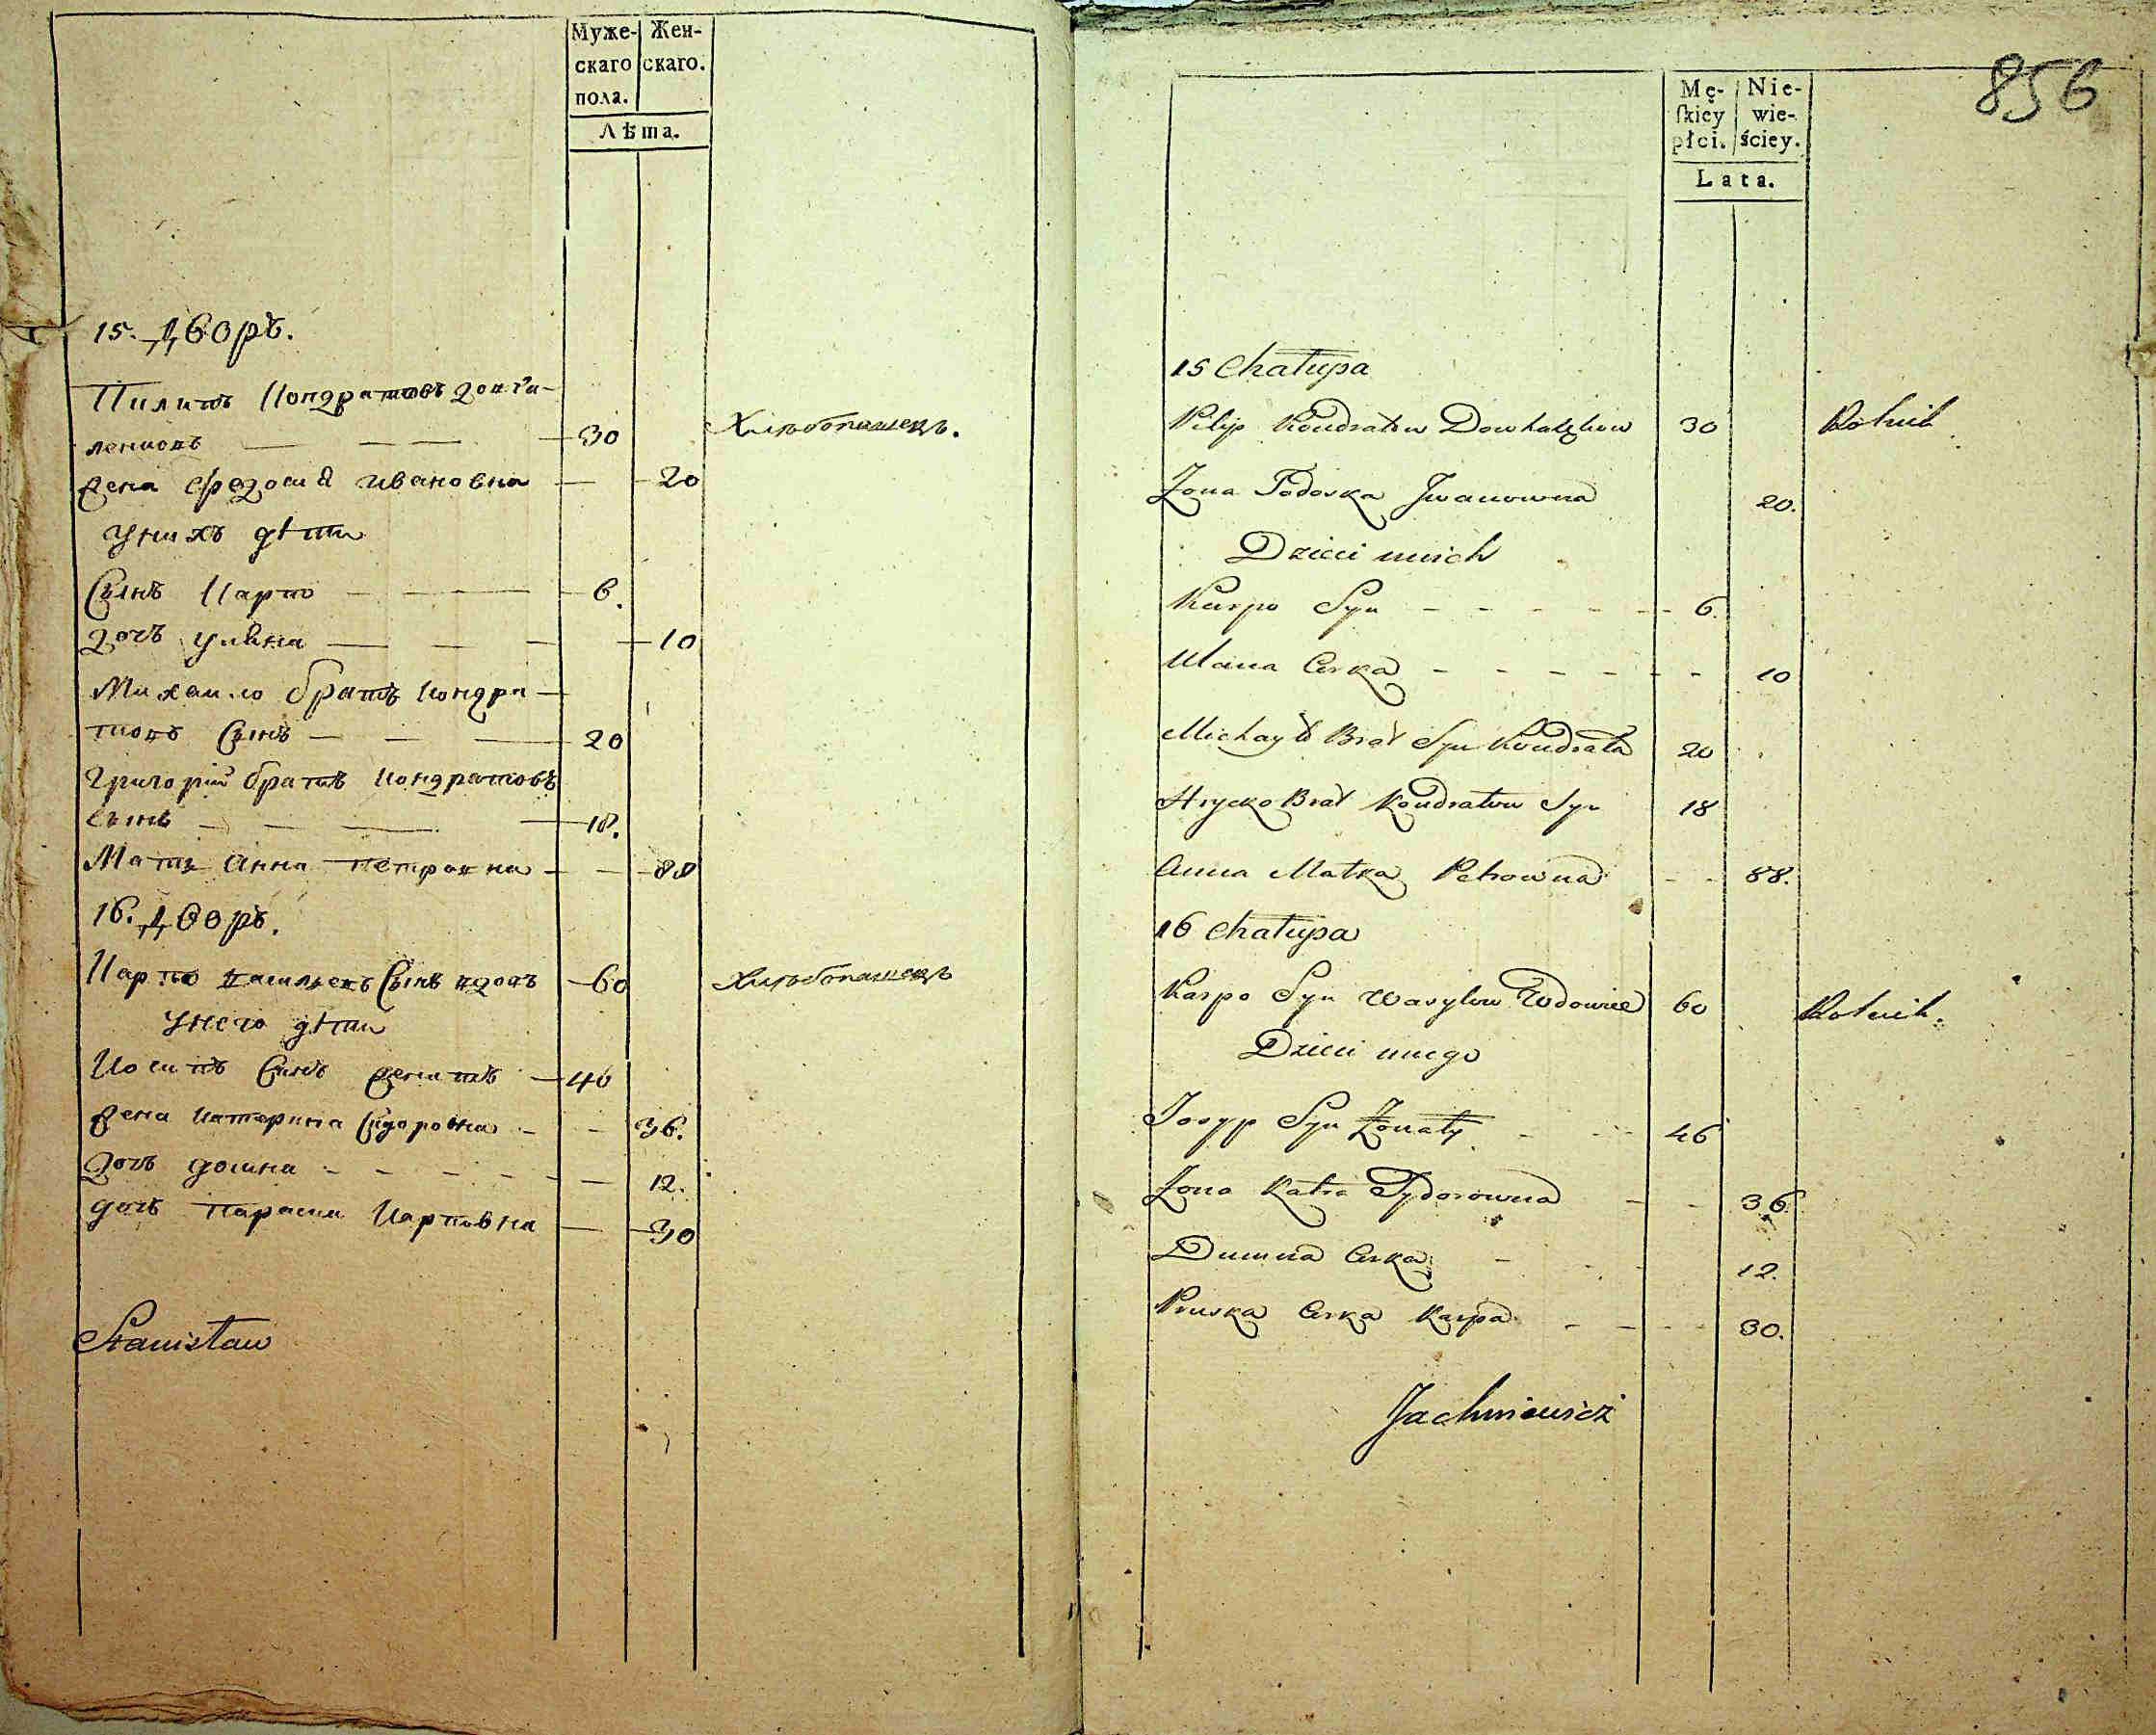 Муже-
скаго
пола.
Жен-
скаго.
Лѣта.
15. Дворъ.
Пилипъ Кондратовъ Довга-
ленковъ — — — 30 Хлѣбопашецъ.
Жена Федосия Ивановна — 20
У нихъ дѣти
Сынъ Карпо — — — 6.
Дочь Уляна — — — 10
Михайло братъ Кондра-
товъ Сынъ — — — 20
Григорій братъ Кондратовъ
сынъ — — — 18.
Мать Анна Петровна — — 88
16. Дворъ.
Карпо Васильевъ Сынъ вдовъ — 60 Хлѣбопашецъ
У него дѣти
Иосипъ Сынъ женатъ — 46
Жена Катерина Сидоровна — — 36.
Дочь Домна — — — — 12.
дочь Параска Карповна — 30
Stanisław
856
Mę-
skiey
płci.
Nie-
wie-
ściey.
Lata.
15 Chałupa
Pilip Kondratow Dowhalenkow 30 Rolnik
Żona Fedoska Jwanowna 20.
Dzieci unich
Karpo Syn - - - - - 6.
Ulana Corka - - - - - - 10
Michayło Brat Syn Kondrata 20
Hrycko Brat Kondratow Syn 18
Anna Matka Petrowna - - 88.
16 Chałupa
Karpo Syn Wasylow Wdowiec 60 Rolnik.
Dzieci unego
Josyp Syn Żonaty - - - 46
Żona Katra Sydorowna - - 36.
Dumna Corka - - - 12.
Pruska Corka Karpa - - - - 30.
Jachniewicz